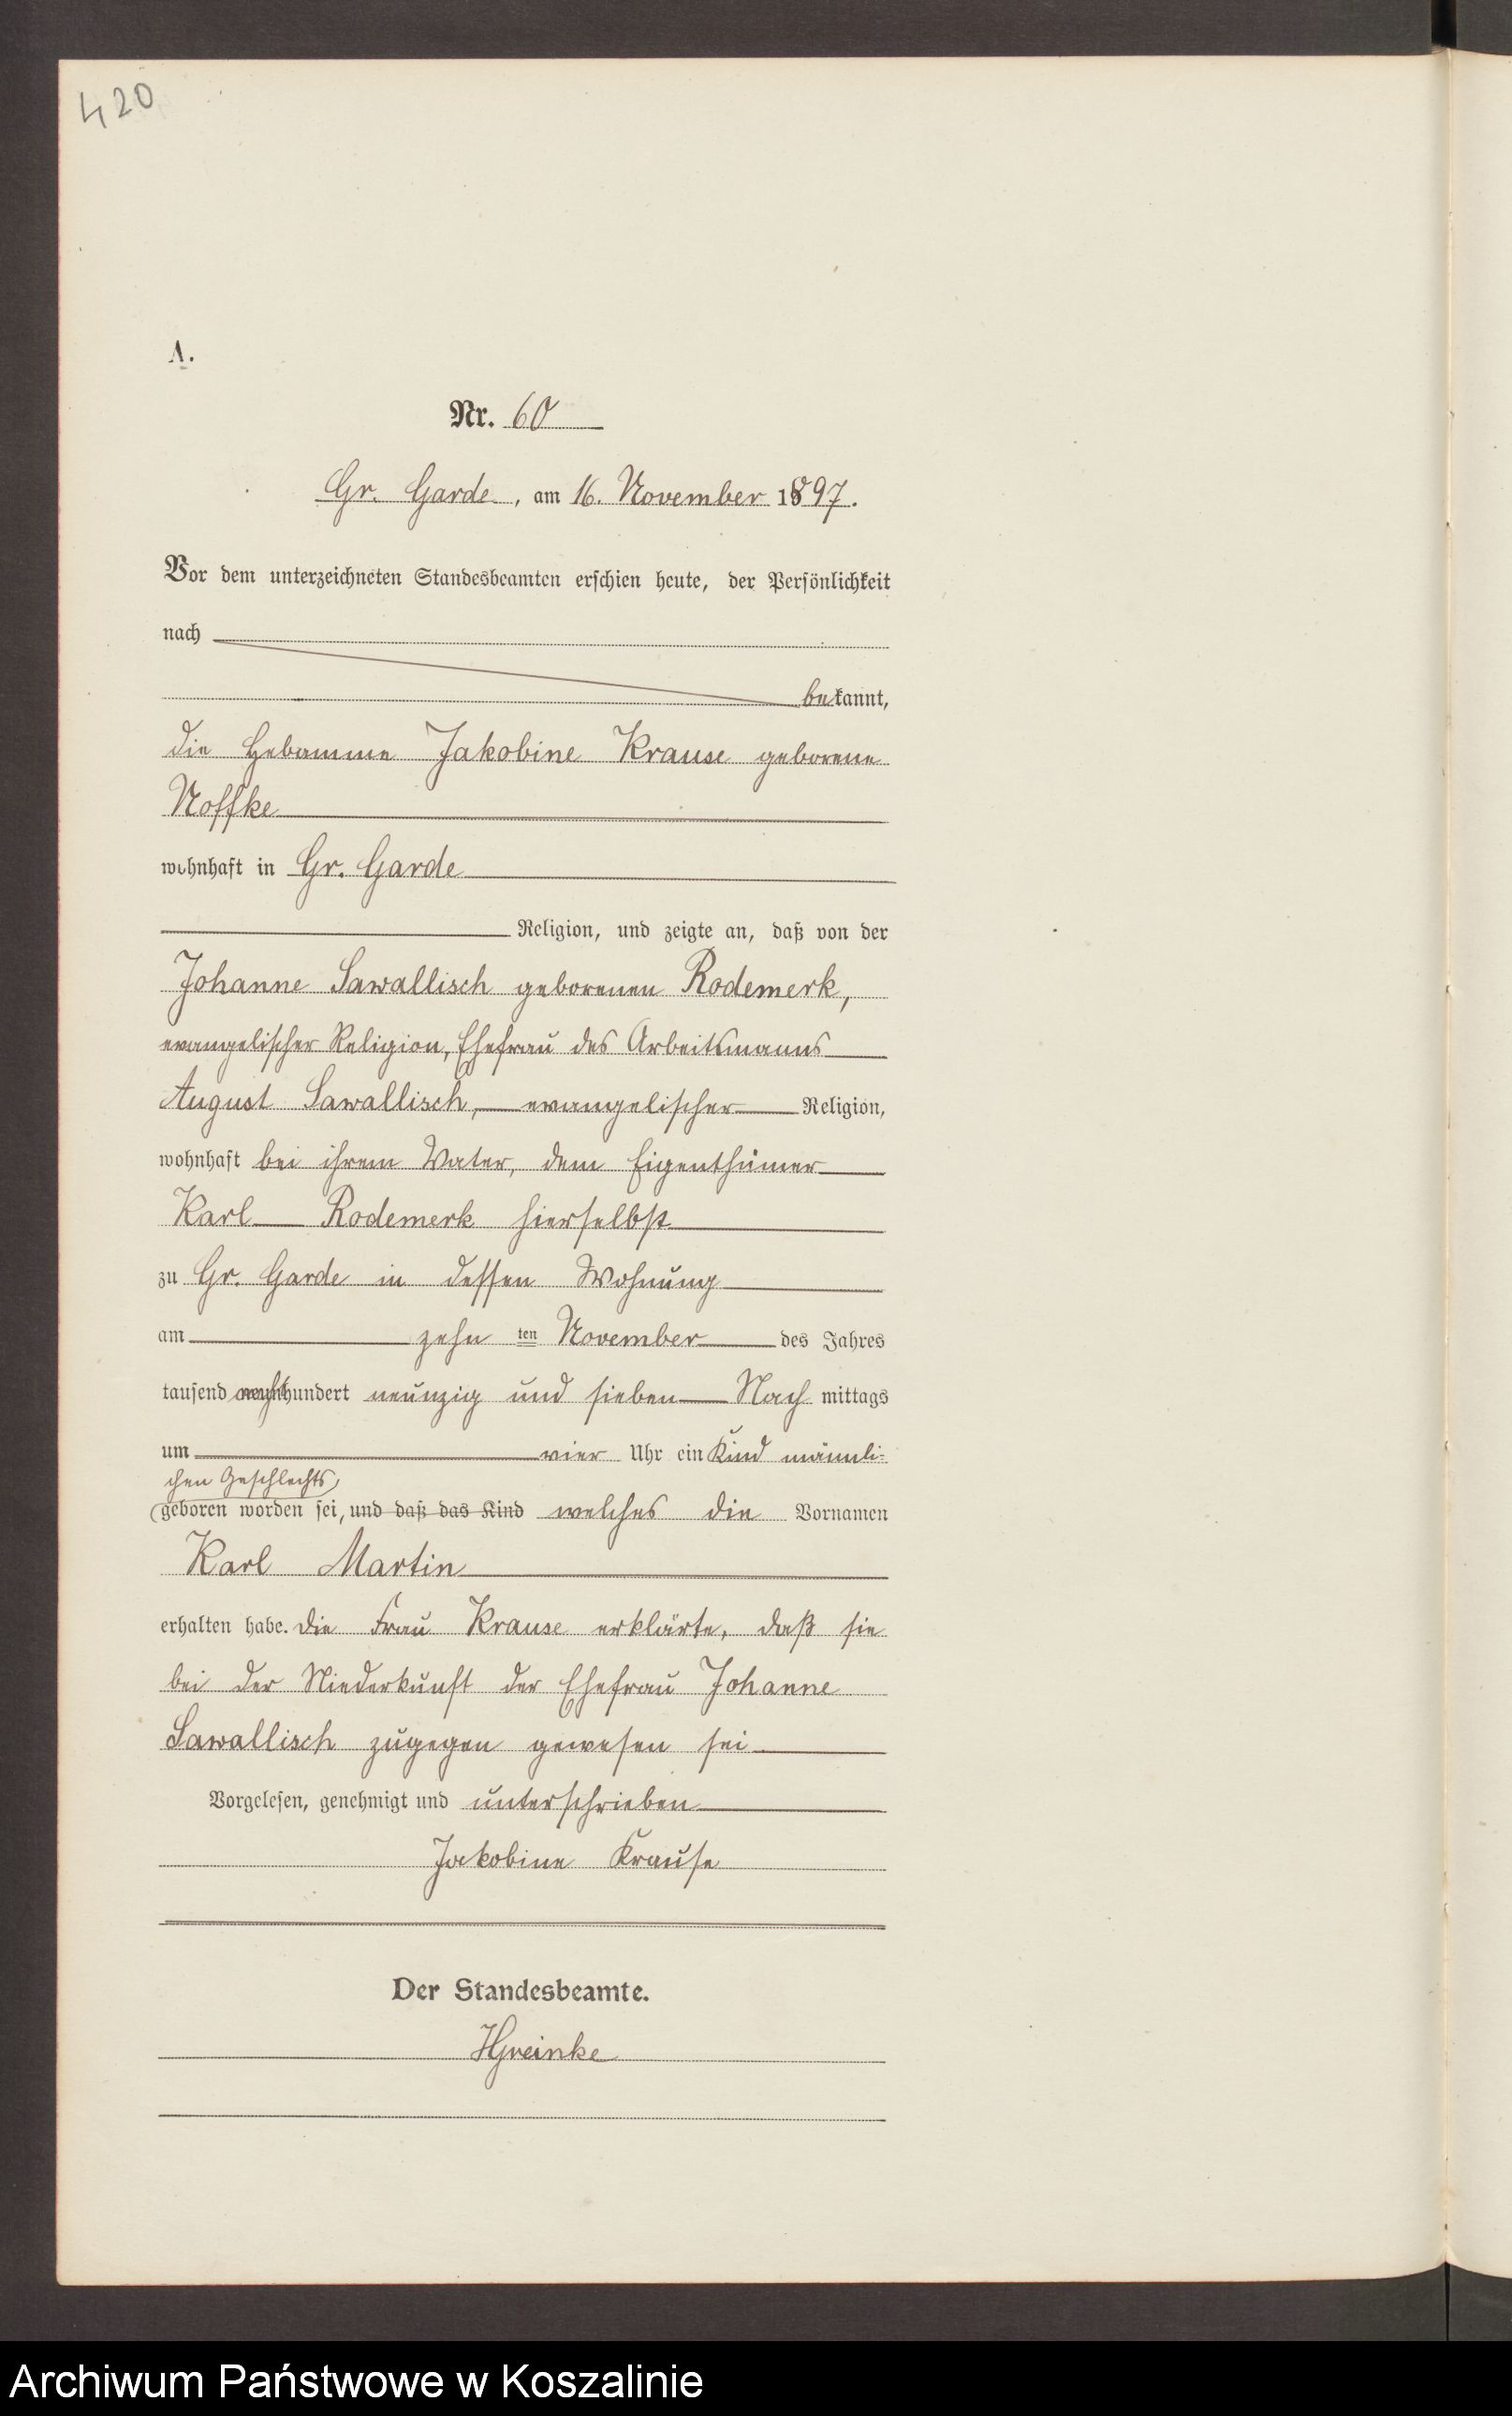 420
A.
Nr. 60
Gr. Garde, am 16. November 1897.
Vor dem unterzeichneten Standesbeamten erschien heute, der Persönlichkeit
nach
bekannt,
die Hebamme Jakobine Krause geborene
Noffke
wohnhaft in Gr. Garde
Religion, und zeigte an, daß von der
Johanne Sawallisch geborenen Rodemerk,
evangelischer Religion, Ehefrau des Arbeitsmanns
August Sawallisch, evangelischer Religion,
wohnhaft bei ihrem Vater, dem Eigenthümer
Karl Rodemerk hierselbst
zu Gr. Garde in dessen Wohnung
am zehn ten November des Jahres
tausend achthundert neunzig und sieben Nach mittags
um vier Uhr ein Kind männli-
chen Geschlechts
geboren worden sei, und daß das Kind welches die Vornamen
Karl Martin
erhalten habe. Die Frau Krause erklärte, daß sie
bei der Niederkunft der Ehefrau Johanne
Sawallisch zugegen gewesen sei
Vorgelesen, genehmigt und unterschrieben
Jakobine Krause
Der Standesbeamte.
HGreinke
Archiwum Państwowe w Koszalinie